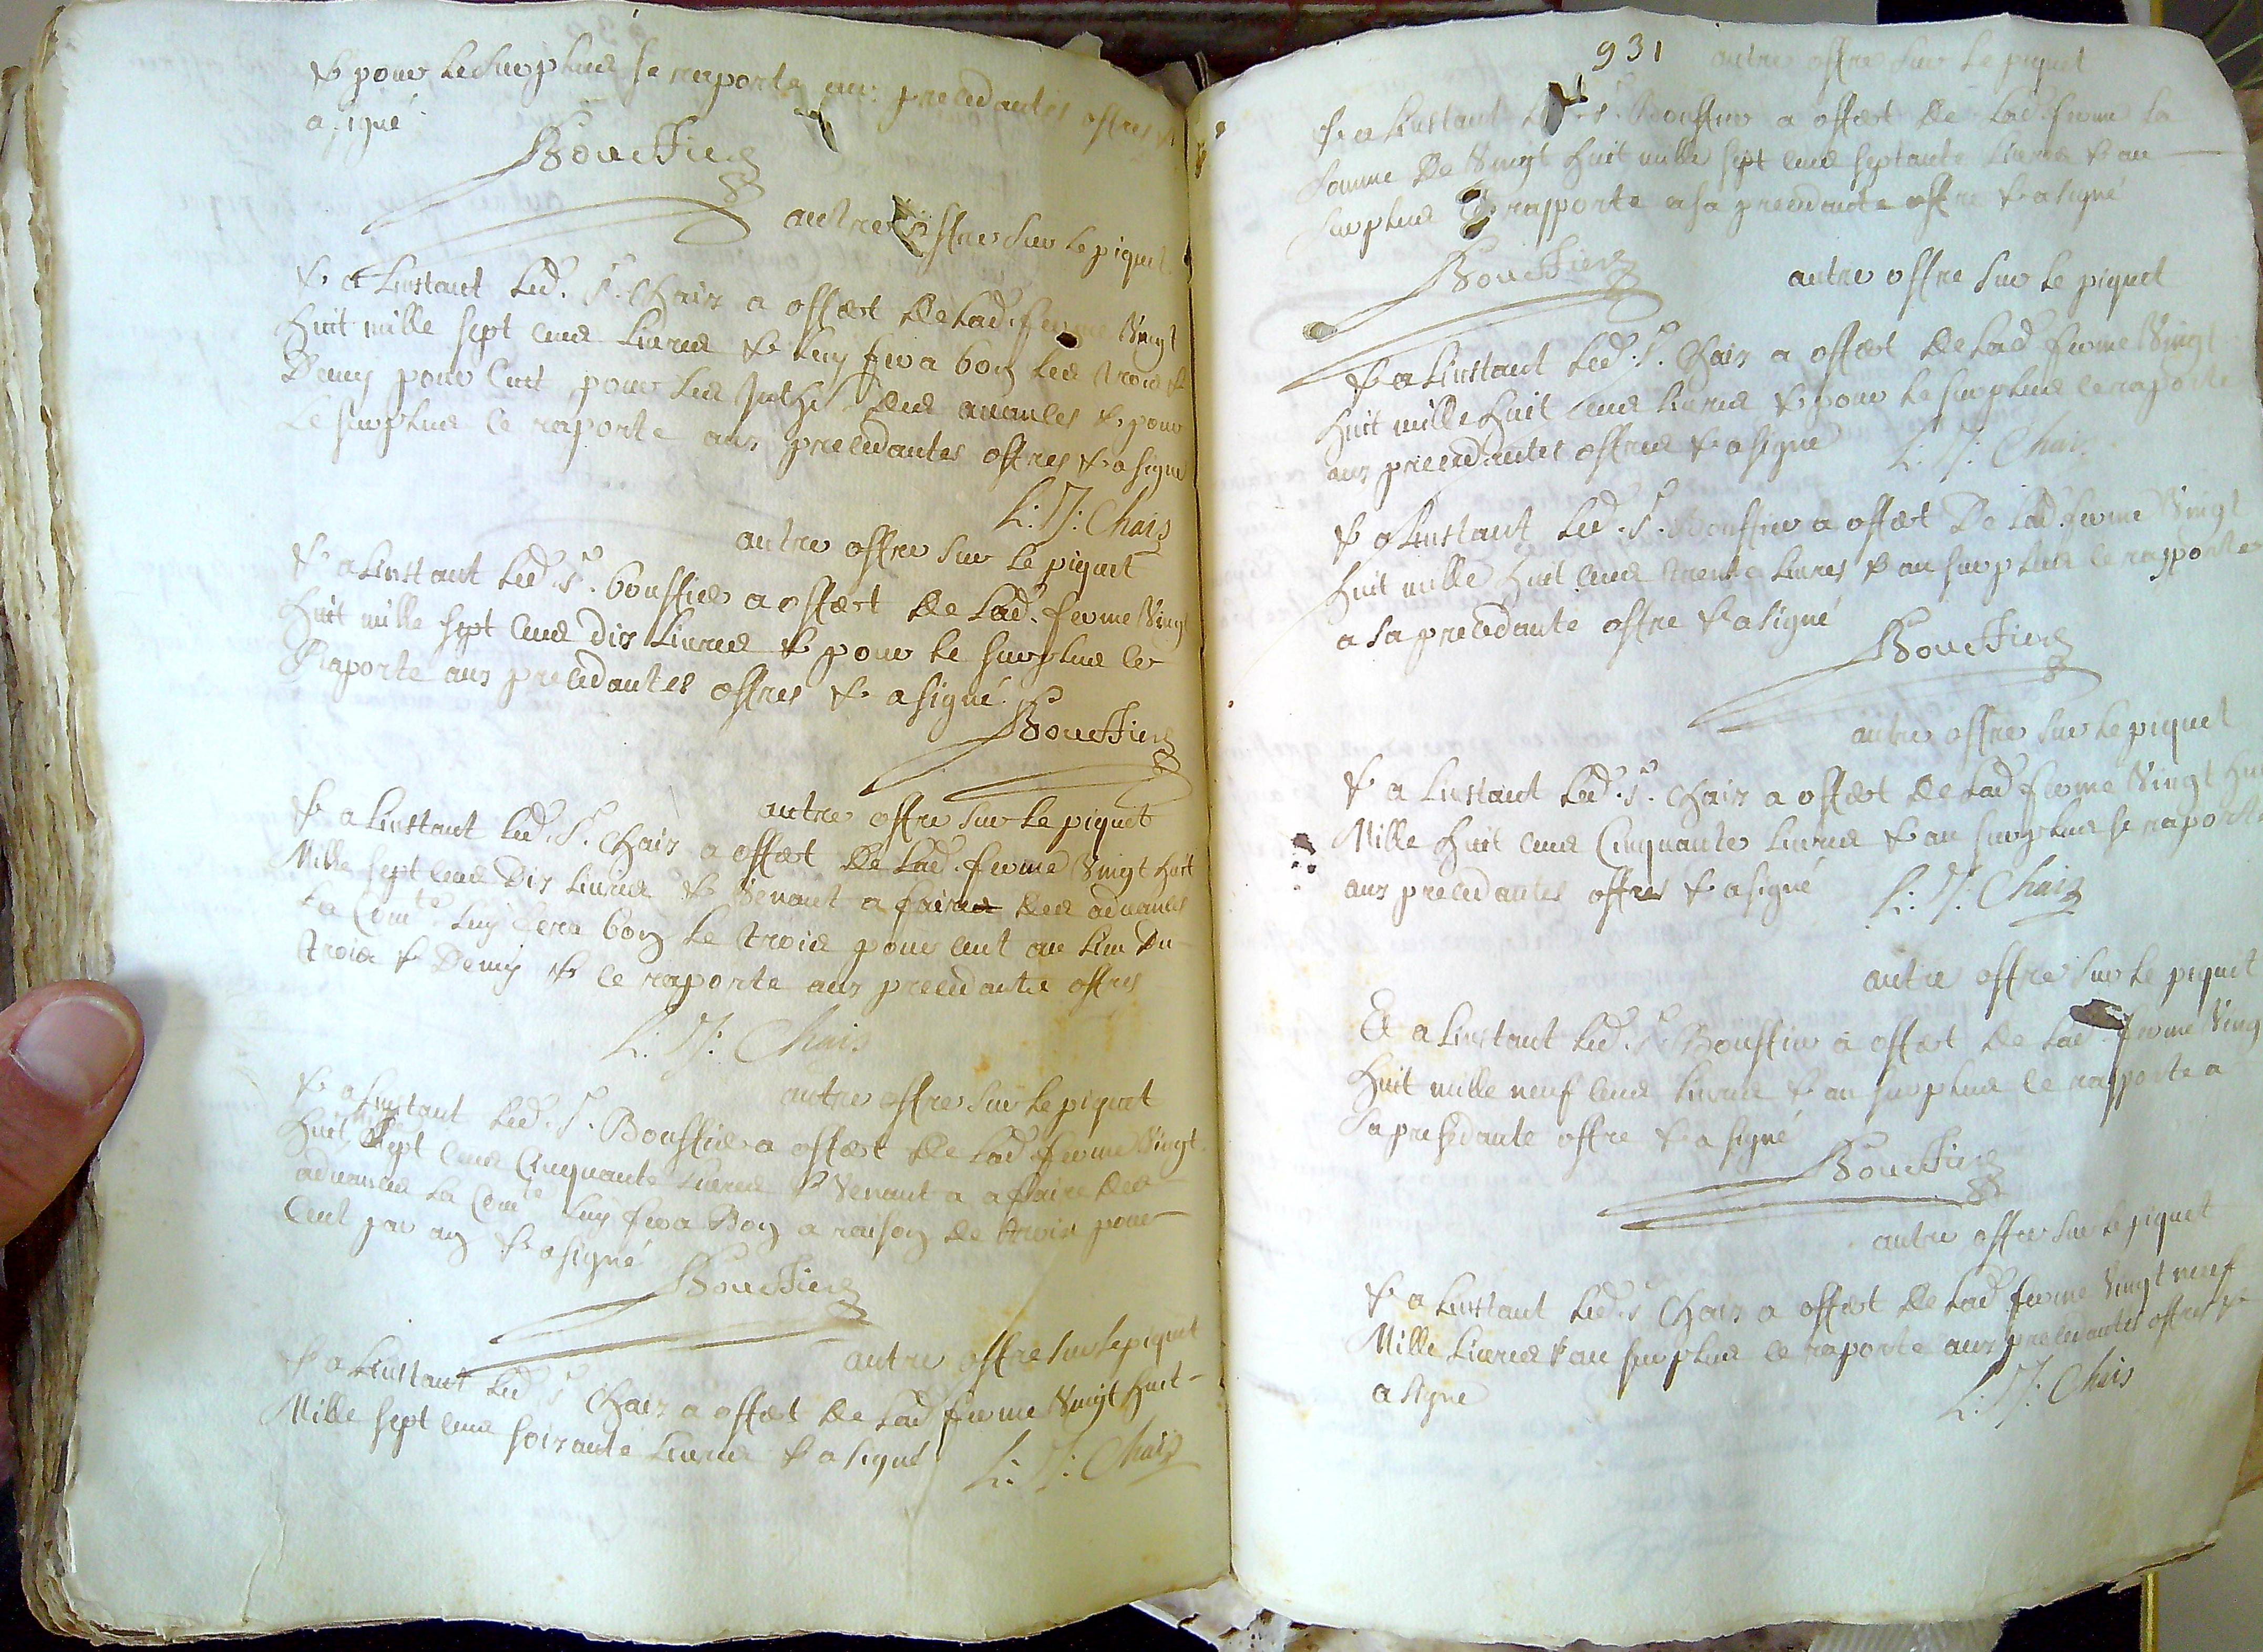 & pour le surplus se raporte aux precedantes offres &
a signé
Bouffier
autre offre sur le piquet
& a linstant led. Sr. Chaix a offert de lad. ferme Vingt
huit mille sept cens livres & luy fera bon les trois &
Demy pour cent pour les des avances & pour
le surplus ce raporte aux precedantes offres & a signé
L: J: Chaix
autre offre sur le piquet
& a linstant led. Sr. bouffier a offert de lad. ferme Vingt
huit mille sept cens dix livres & pour le surplus ce
Raporte aux precedantes offres & a signé
Bouffier
autre offre sur le piquet
& a linstant led. Sr. Chaix a offert de lad. ferme Vingt huit
Mille sept cens Dix livres & Venant a faire des advances
La Comte. luy sera bon le trois pour cent au lieu Du
trois & Demy & ce raporte aux precedante offres
L: J: Chaix
autre offre sur le piquet
& a linstant led. Sr. Bouffier a offert de lad. ferme Vingt
huit sept cens Cinquante livres & Venant a affaire des
advances la Comte luy fera Bon a raison de trois pour
Cent par an & a signé
Bouffier
autre offre sur le piquet
& a linstant led Sr Chaix a offert de lad ferme Vingt huit
Mille sept cens soixante livres & a signé L: J: Chaix
931
autre offre sur le piquet
& a linstant Sr. Bouffier a offert de lad. ferme la
somme de Vingt huit mille sept cens septante livres & au
surplus rapporte a sa precedante offre & a signé
Bouffier
autre offre sur le piquet
& a linstant led. Sr. Chaix a offert de lad ferme Vingt
huit mille huit cens livres & pour le surplus ce raporte
aux precedantes offres & a signé L: J: Chaix
& a linstant led. Sr. Bouffier a offert De lad. ferme Vingt
huit mille huit cens trente livres & au surplus ce rapporte
a sa precedante offre & a signé
Bouffier
autre offre sur le piquet
& a linstant led. Sr. Chaix a offert de lad ferme Vingt huit
Mille huit cens Cinquante livres & au surplus se raporte
aux precedantes offres & a signé L: J: Chaix
autre offre sur le piquet
Et a linstant led. Sr Bouffier a offert de lad ferme Vingt
huit mille neuf cens livres & au surplus ce rapporte a
sa presedante offre & a signé
Bouffier
autre offre sur le piquet
& a linstant led. Sr Chaix a offert de lad ferme Vingt neuf
Mille livres & au surplus ce raporte aux precedantes offres &
a signe L: J: Chaix